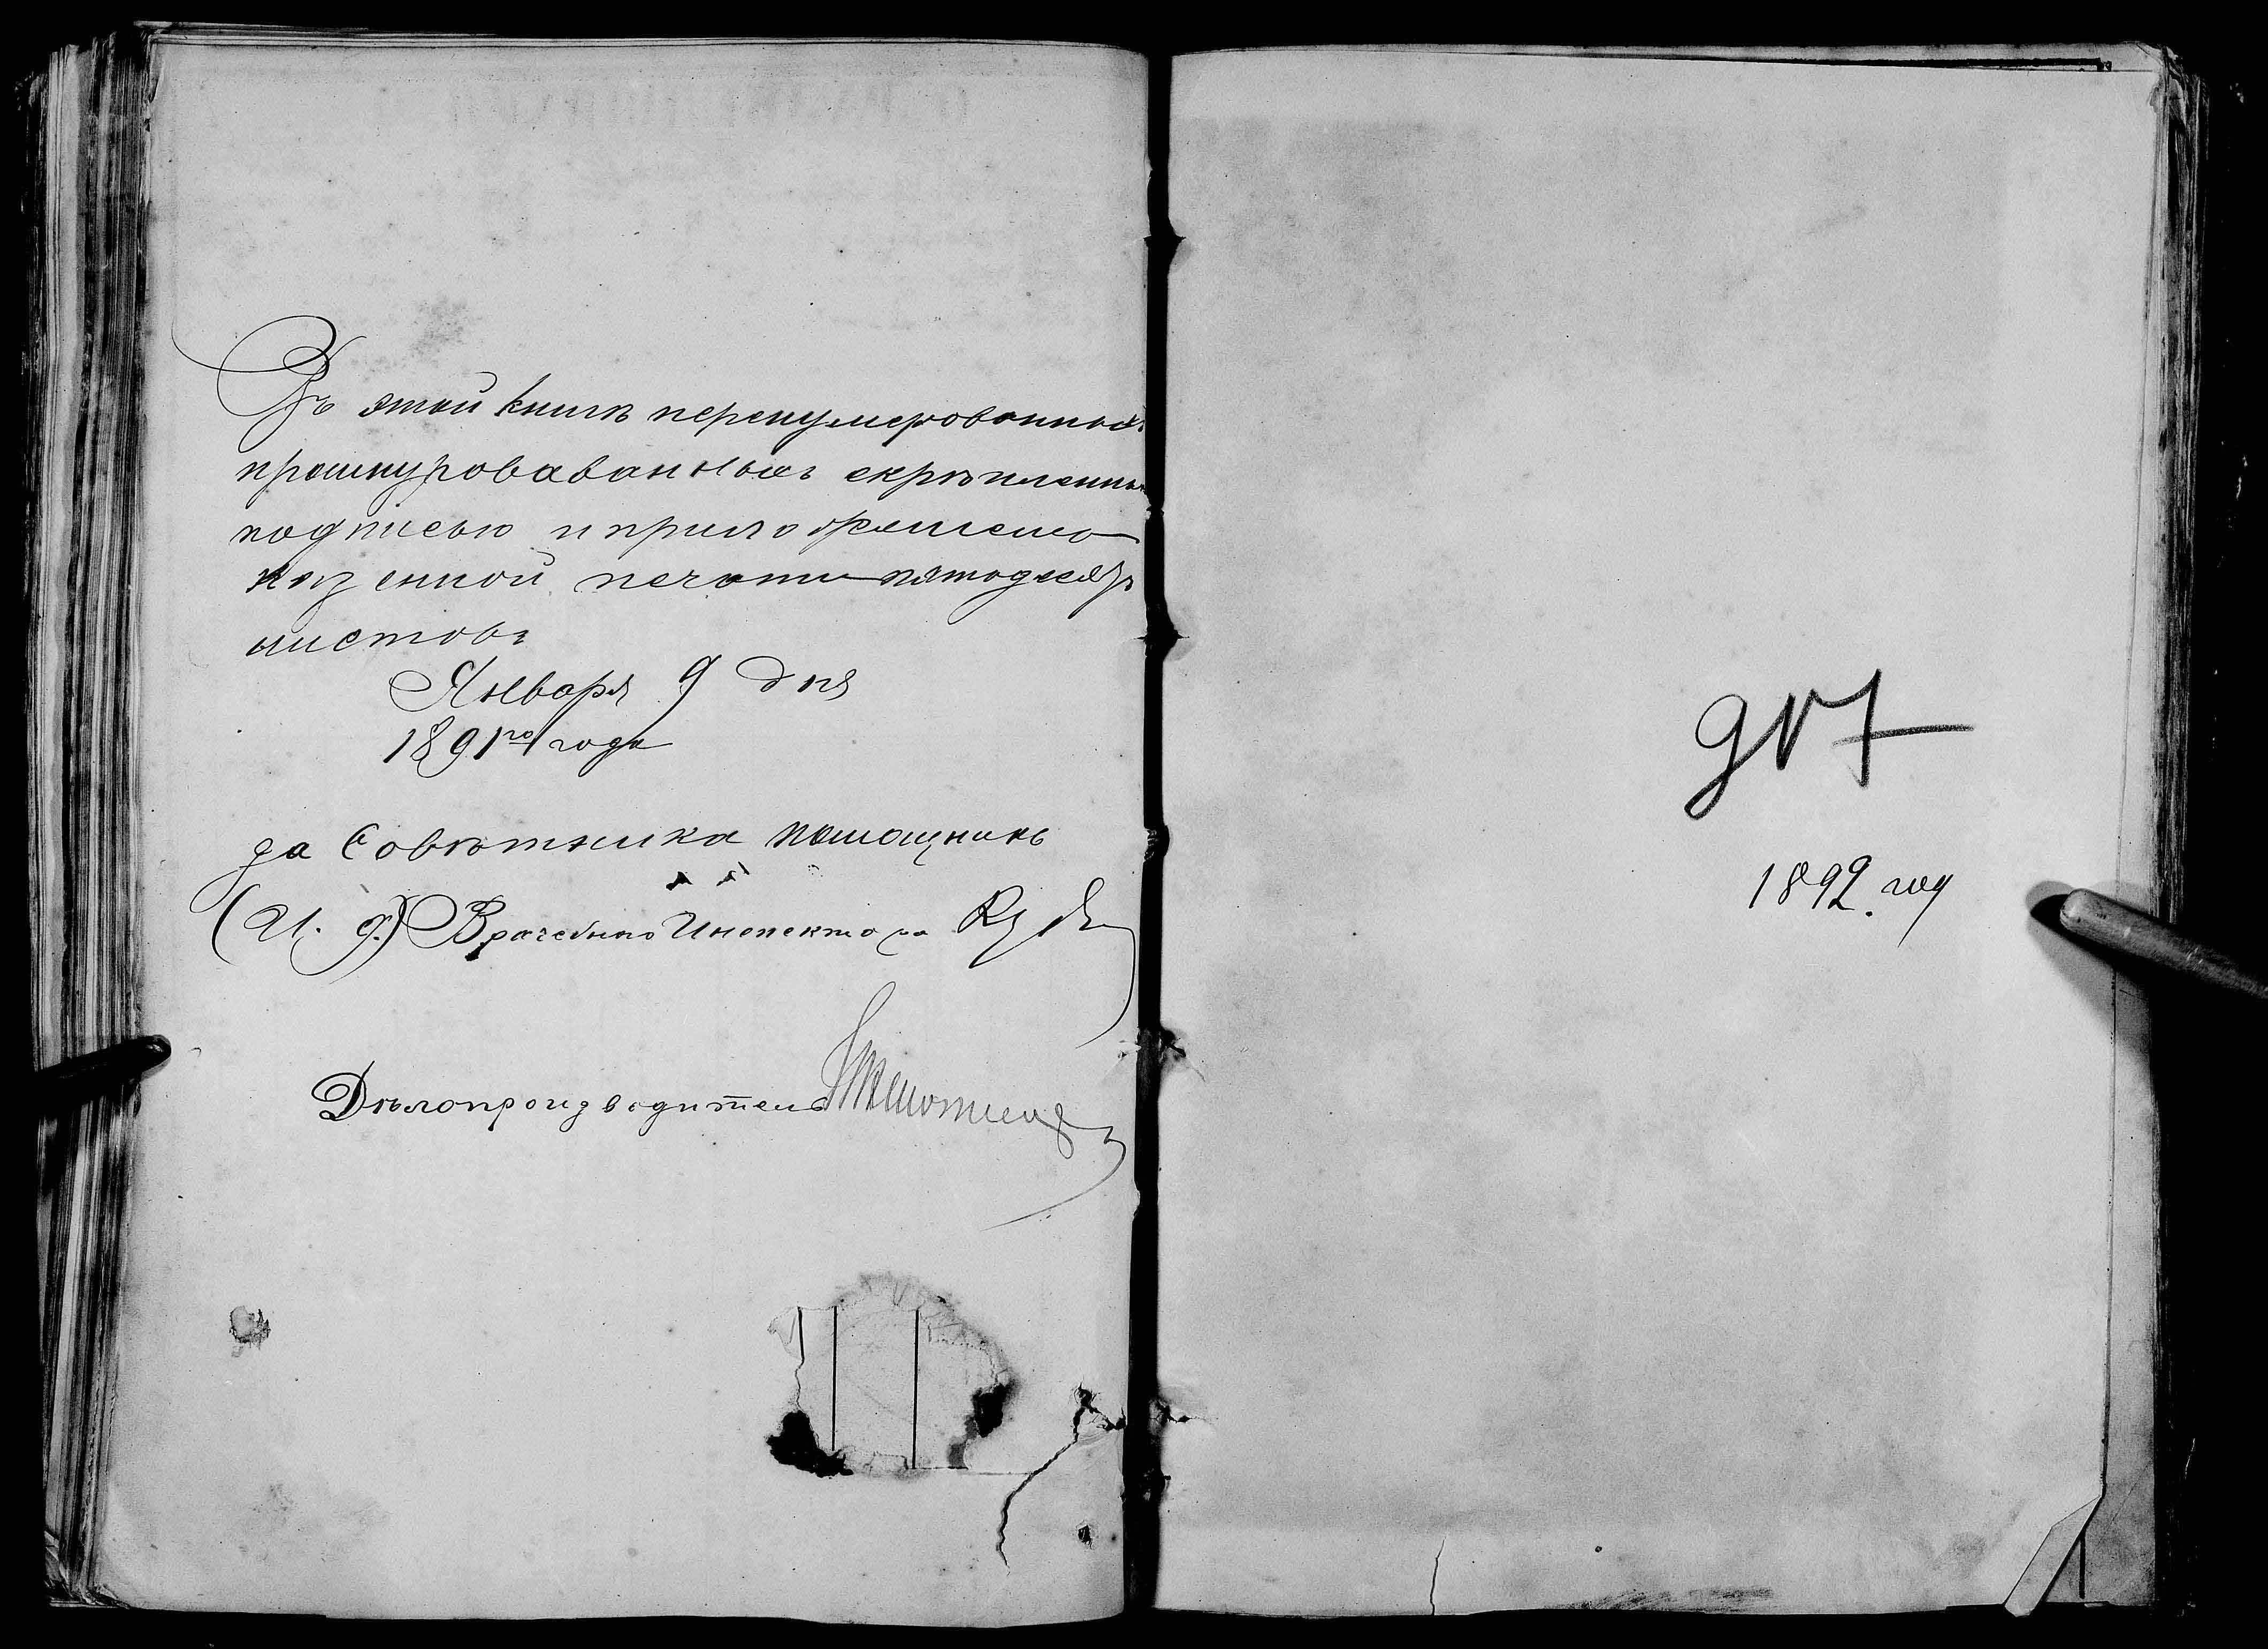 Въ этой книгѣ перенумерованныхъ
прошнуровававанныхъ скрѣпленны
подписью и приложеніемъ
казенной печати пятьдесятъ
листовъ
Января 9 дня
1891го года
за Совѣтника помощникъ
(И. д.) Врачебнаго Инспектора
Дѣлопроизводитель
1892. год